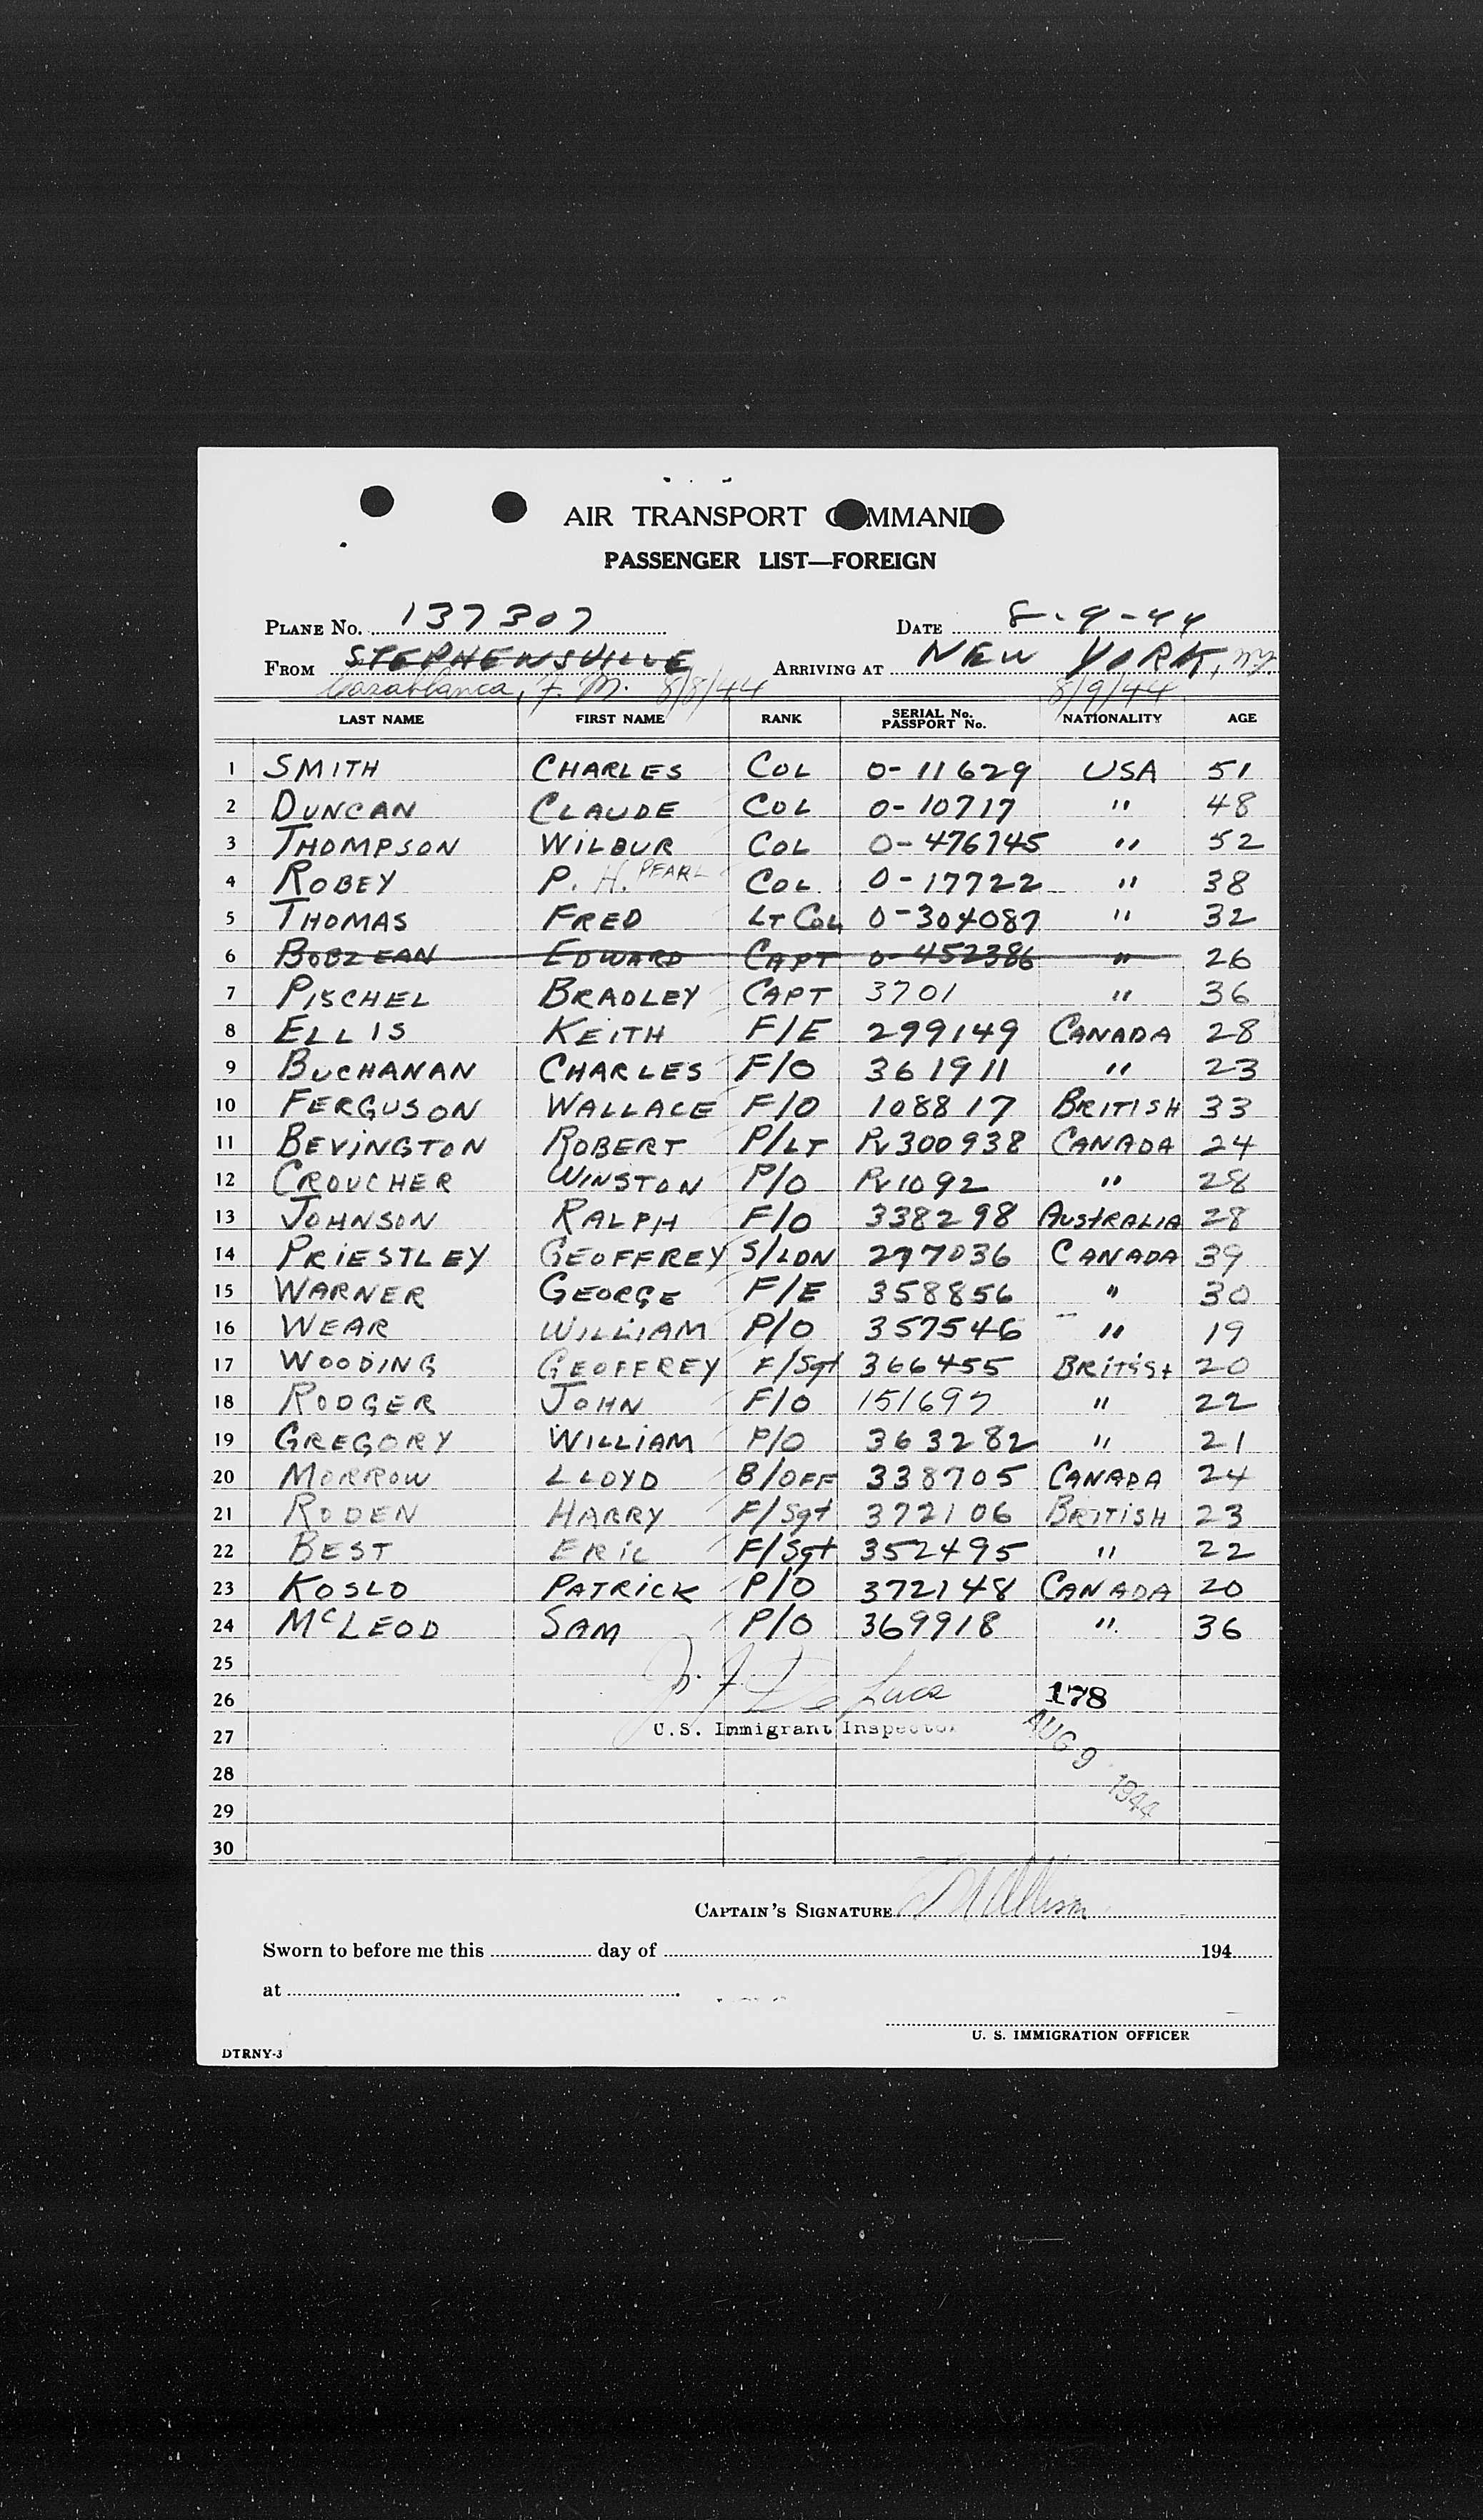 AIR TRANSPORT COMMAND
PASSENGER LIST—FOREIGN
PLANE No. 137307 DATE 8-9-44
FROM STEPHENSVILLE ARRIVING AT NEW YORK, NY.
Casablanca, F. M. 8/8/44 8/9/44
LAST NAME FIRST NAME RANK SERIAL No. PASSPORT No. NATIONALITY AGE
1 SMITH CHARLES COL 0-11629 USA 51
2 DUNCAN CLAUDE COL 0-10717 " 48
3 THOMPSON WILBUR COL 0-476745 " 52
4 ROBEY P. H. PEARL COL 0-17722 " 38
5 THOMAS FRED LT COL 0-304087 " 32
6 BOBZEAN EDWARD CAPT 0-452386 " 26
7 PISCHEL BRADLEY CAPT 3701 " 36
8 ELLIS KEITH F/E 299149 CANADA 28
9 BUCHANAN CHARLES F/O 361911 " 23
10 FERGUSON WALLACE F/O 108817 BRITISH 33
11 BEVINGTON ROBERT P/LT Pv300938 CANADA 24
12 CROUCHER WINSTON P/O Pv1092 " 28
13 JOHNSON RALPH F/O 338298 AUSTRALIA 28
14 PRIESTLEY GEOFFREY S/LDN 297036 CANADA 39
15 WARNER GEORGE F/E 358856 " 30
16 WEAR WILLIAM P/O 357546 " 19
17 WOODING GEOFFREY F/Sgt 366455 BRITISH 20
18 RODGER JOHN F/O 151697 " 22
19 GREGORY WILLIAM P/O 363282 " 21
20 MORROW LLOYD B/OFF 338705 CANADA 24
21 RODEN HARRY F/Sgt 372106 BRITISH 23
22 BEST ERIC F/Sgt 352495 " 22
23 KOSLO PATRICK P/O 372148 CANADA 20
24 McLEOD SAM P/O 369918 " 36
25
26 De Luca 178
27 U.S. Immigrant Inspector AUG 9 1944
28
29
30
CAPTAIN'S SIGNATURE
Sworn to before me this day of 194
at
U. S. IMMIGRATION OFFICER
DTRNY-3